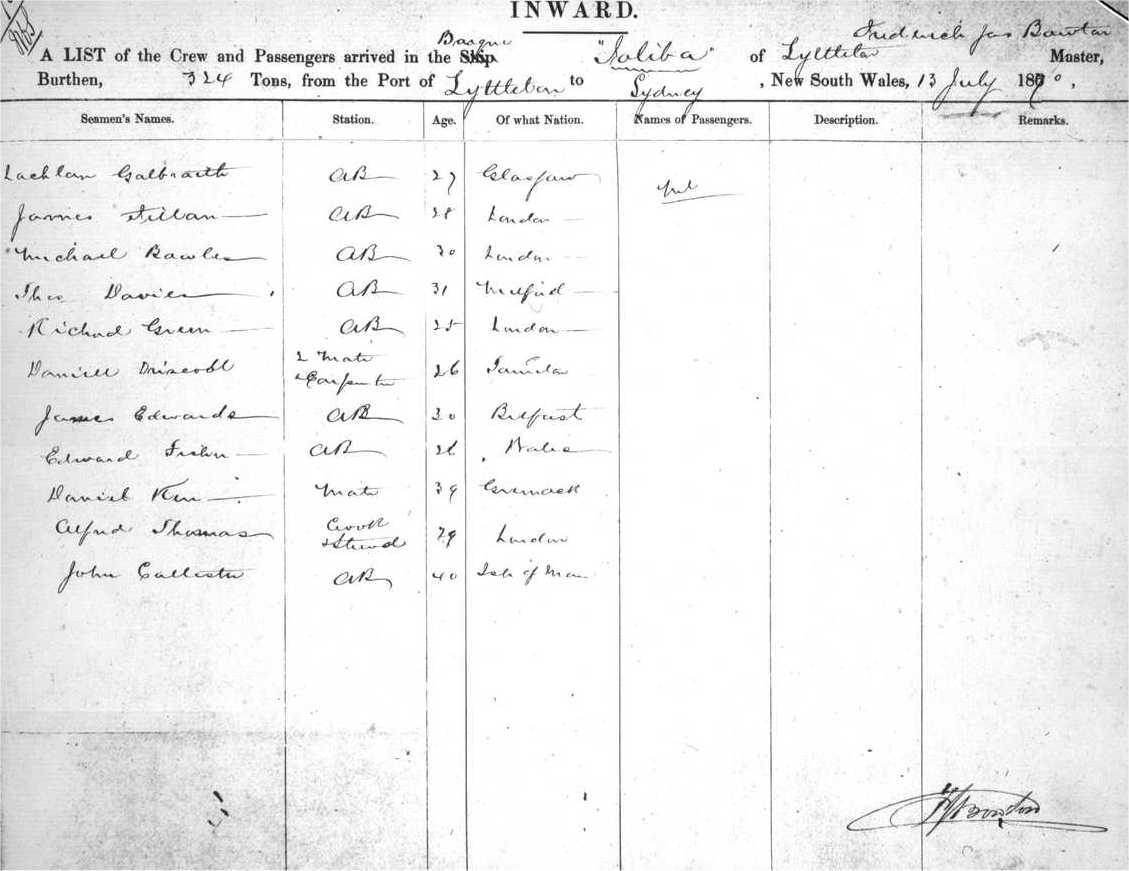 INWARD.
Barque Frederich Jas Bowton
A LIST of the Crew and Passengers arrived in the Ship "Soliba" of Lyttleton Master,
Burthen, 324 Tons, from the Port of Lyttleton to Sydney, New South Wales, 13 July 1870,
Seamen's Names. Station. Age. Of what Nation. Names of Passengers. Description. Remarks.
Lachlan Galbraith AB 27 Glasgow Nil
James AB 28 London
Michael Bowles AB 30 London
Thos Davies AB 31 Milford
Richard Green AB 25 London
Daniell Driscobl 2 Mate & Carpenter 26
James Edwards AB 30 Belfast
Edward Fisher AB Wales
Daniel Kerr Mate 39 Greenock
Alfred Thomas Coook & Steward 29 London
John Callister AB 40 Isle of Man